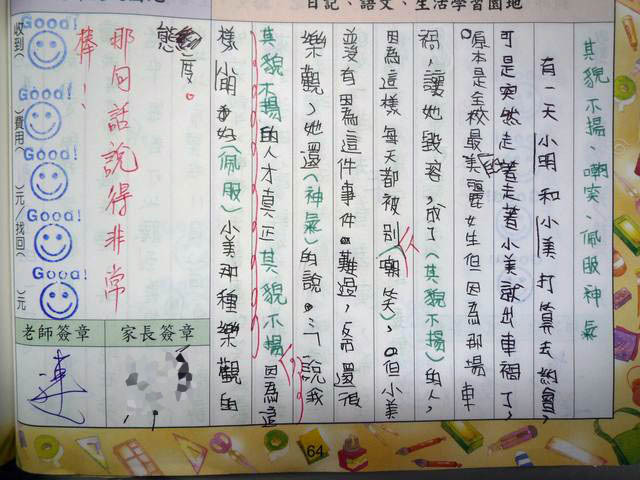 日記、語文、生活學習園地
其貌不揚、嘲笑、佩服神氣
有一天小明和小美打算去約會,
可是突然走著走著小美就出車禍了,
原本是全校最美麗的女生但因為那場車
禍,讓她毀容,成了(其貌不揚)的人,
因為這樣每天都被別人(嘲笑)。但小美
並沒有因為這件事件難過,反而還很
樂觀,她還(神氣)的說。「說我
其貌不揚的人才真正其貌不揚因為這
樣小明好(佩服)小美那種樂觀的
態度。
那句話說得非常
棒!
Good!
Good!
Good!
Good!
Good!
收到(
)費用(
)元/找回(
)元
老師簽章
家長簽章
連
64